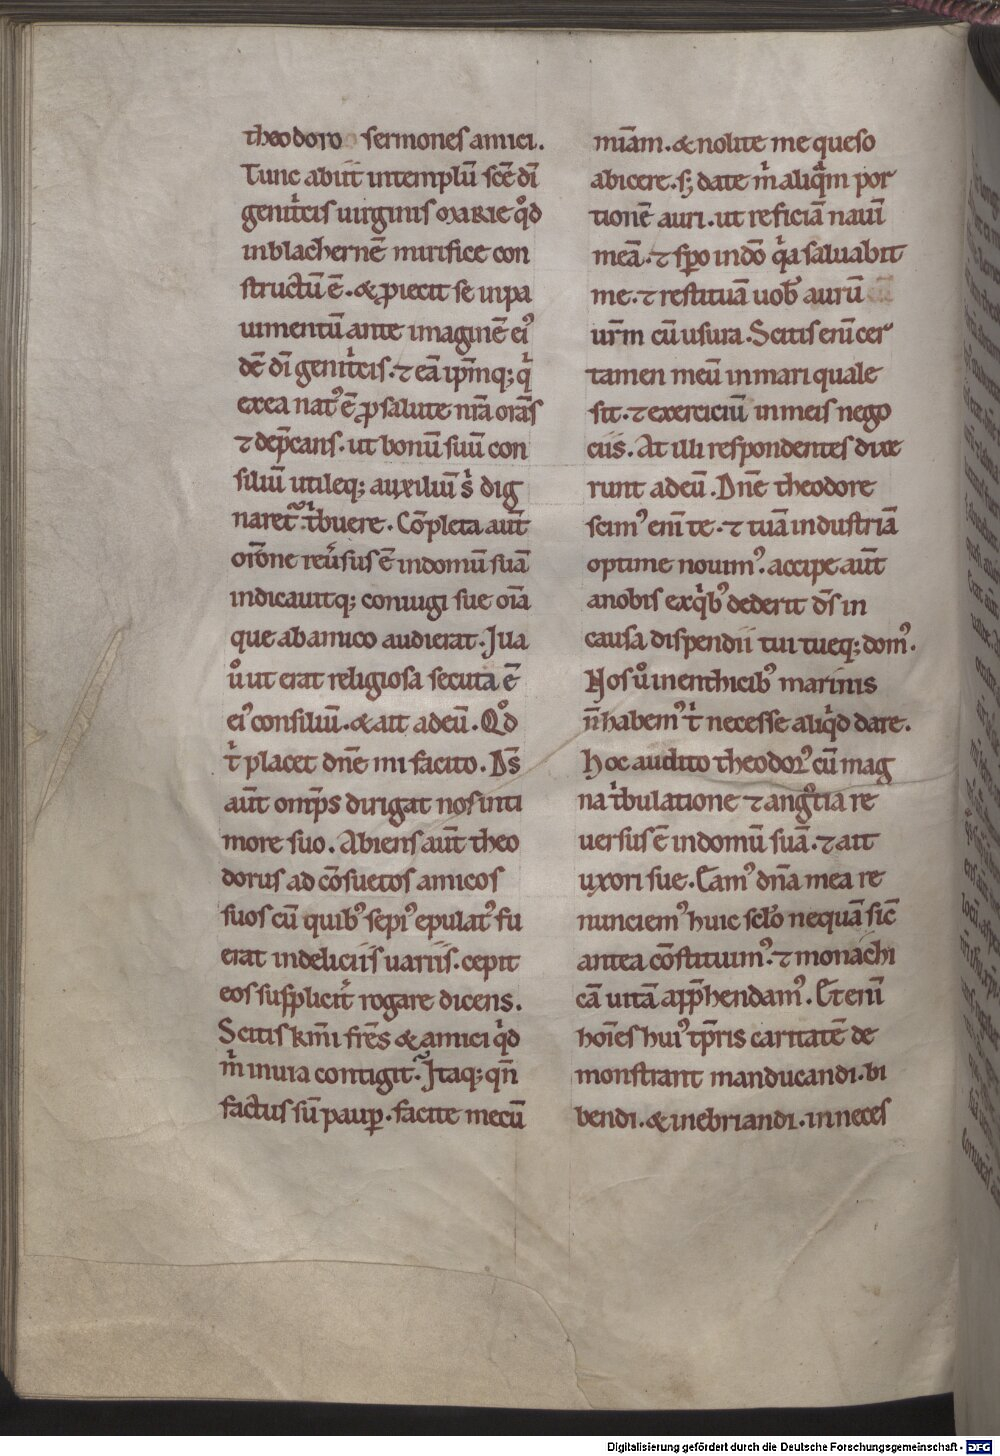 theodoro sermones amici.
Tunc abiit in templū scē dī
genitͥcis uirginis MARIE qͦd
in blachernē mirifice con
structū ē. & ꝓiecit se in pa
uimentū ante imaginē eiꝰ
dē dī genitͥcis. ⁊ eā ip̄mq; qͥ
ex ea natꝰ ē ꝓ salute nr̄a orās
⁊ dep̄cans. ut bonū suū con
siliū utileq; auxiliū sͥ dig
naret᷑ tͥbuere. Cōpleta aut̄
orōne reu͛sus ē in domū suā
indicauitq; coniugi sue oīa
que ab amico audierat. Jlla
u̾o ut erat religiosa secuta ē
eiꝰ consiliū. & ait ad eū. Qͦd
tͥ placet dn̄e mi facito. Ds̄
aut̄ omp̄s dirigat nos in ti
more suo. Abiens aut̄ theo
dorus ad cōsuetos amicos
suos cū quibꝰ sepiꝰ epulatꝰ fu
erat in deliciis uariis. cepit
eos supplicit͛ rogare dicens.
Scitis km̄i frēs & amici qͥd
mͥ in uia contigit. Jtaq; qn̄
factus sū paup̱. facite mecū
miām. & nolite me queso
abicere. s; date mͥ aliqͣm por
tionē auri. ut reficiā nauī
meā. ⁊ sp̱o in dō qͥa saluabit
me. ⁊ restituā uob̄ aurū
ur̄m cū usura. Scitis enī cer
tamen meū in mari quale
sit. ⁊ exerciciū in meis nego
ciis. At illi respondentes dixe
runt ad eū. Dn̄e theodore
scimꝰ enī te. ⁊ tuā industriā
optime nouimꝰ. accipe aut̄
a nobis ex qͥbꝰ dederit ds̄ in
causa dispendii tui tueq; domꝰ.
Nos u̾o in enthicibꝰ marinis
n̄ habemꝰ tͥ necesse aliqͥd dare.
Hoc audito theodorꝰ cū mag
na tͥbulatione ⁊ angͦtia re
uersus ē in domū suā. ⁊ ait
uxori sue. Eamꝰ dn̄a mea re
nunciemꝰ huic sc̄lo nequā sic̄
antea cōstituimꝰ. ⁊ monachi
cā uitā app̄hendamꝰ. Etenī
hoīes huiꝰ tp̄ris caritatē de
monstrant manducandi. bi
bendi. & inebriandi. in neces
Digitalisierung gefördert durch die Deutsche Forschungsgemeinschaft - DFG